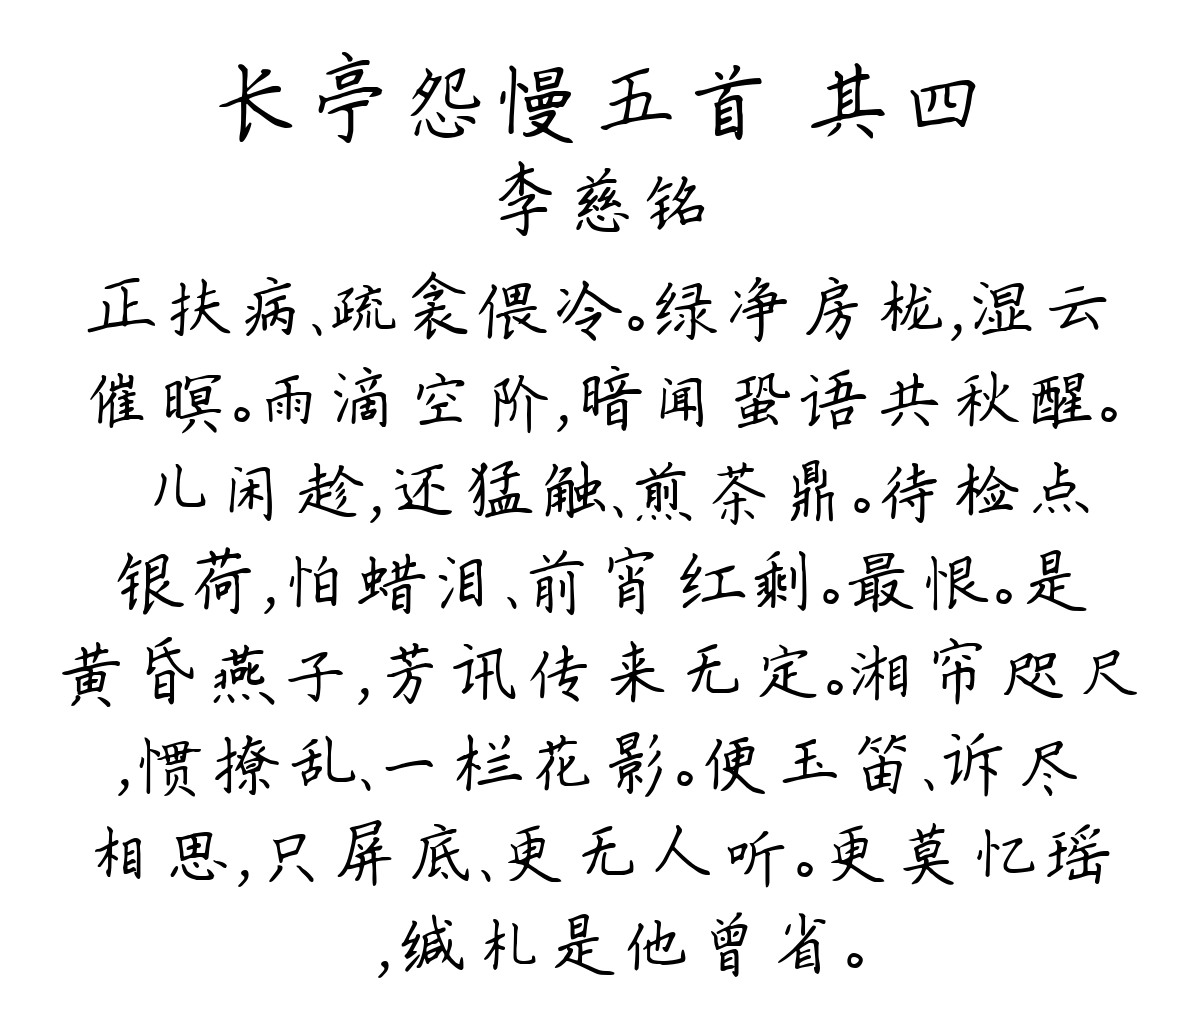 长亭怨慢五首 其四
李慈铭
正扶病、疏衾偎冷。绿净房栊,湿云
催暝。雨滴空阶,暗闻蛩语共秋醒。
儿闲趁,还猛触、煎茶鼎。待检点
银荷,怕蜡泪、前宵红剩。最恨。是
黄昏燕子,芳讯传来无定。湘帘咫尺
,惯撩乱、一栏花影。便玉笛、诉尽
相思,只屏底、更无人听。更莫忆瑶
,缄札是他曾省。